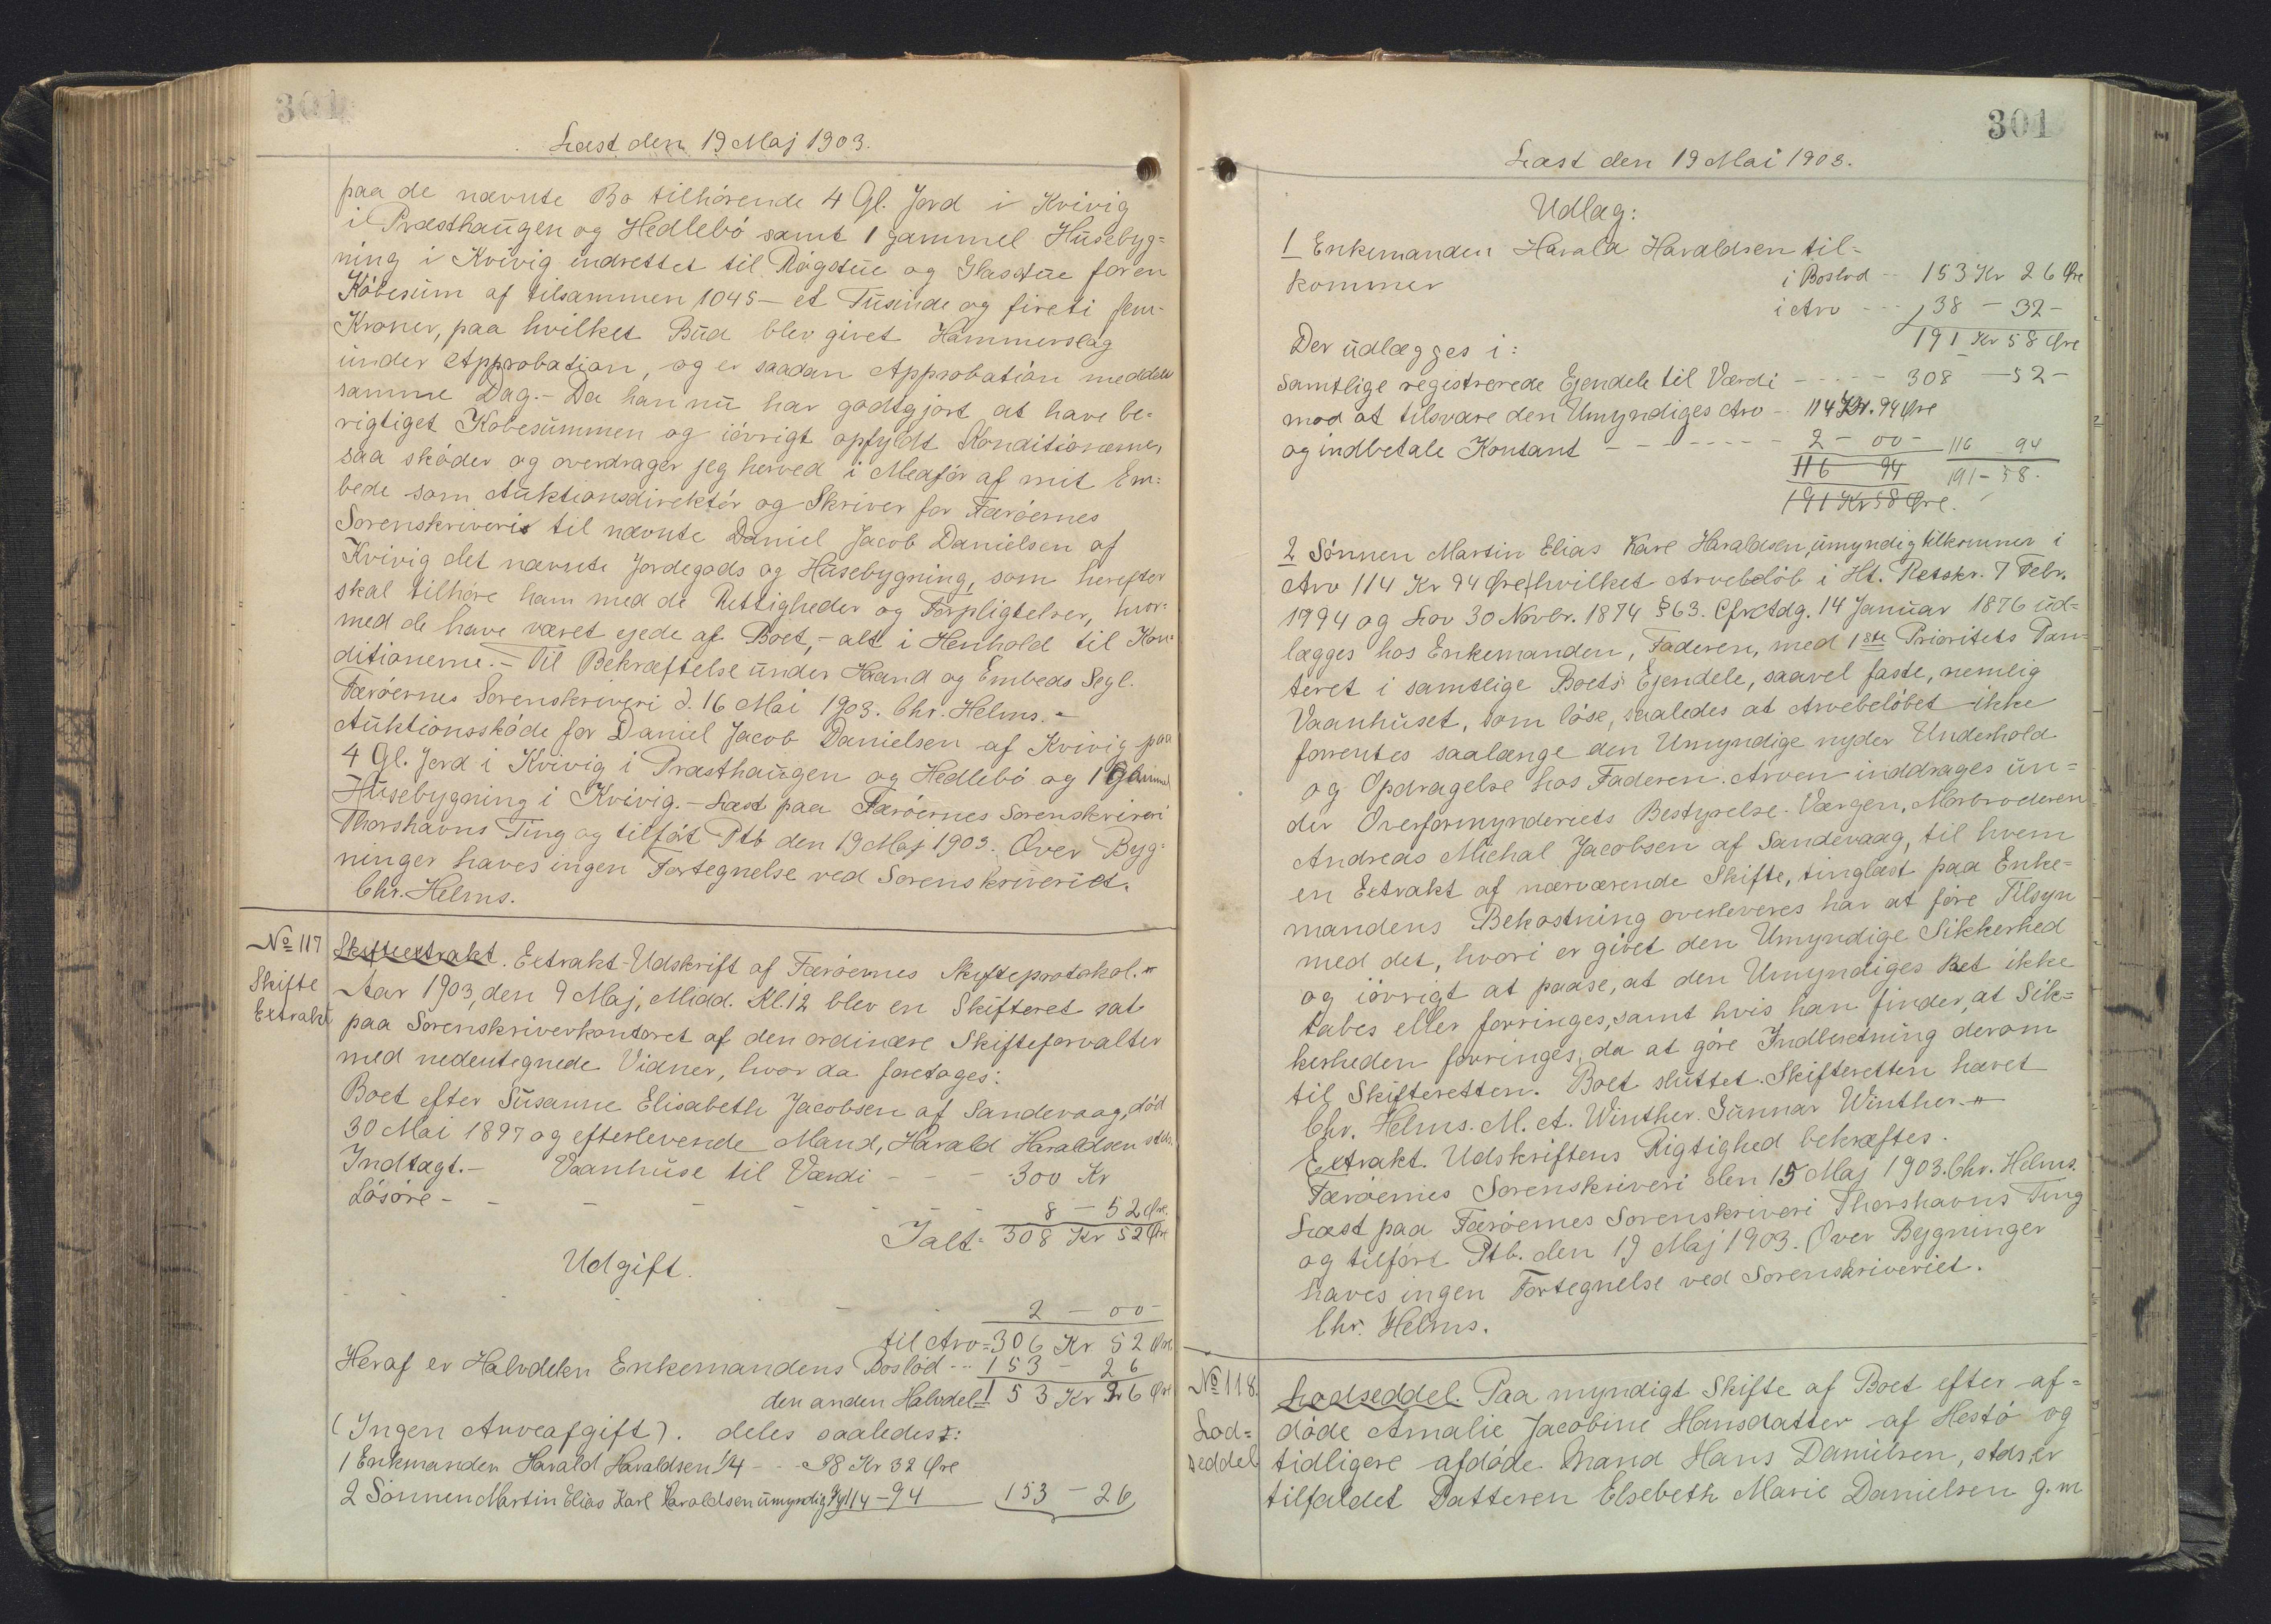 301
Læst den 19 Maj 1903.
paa de nævnte Bo tilhörende 4 Gl. Jord i Kvivig
i Præsthaugen og Hedlebö samt 1 gammel Husebyg=
ning i Kvivig indrettet til Rögstue og Glasstue for en
Köbesum af tilsammen 1045 – et Tusinde og fireti fem –
Kroner, paa hvilket Bud blev givet Hammerslag
under Approbation, og er saadan Approbation meddelt
samme Dag. – Da han nu har godtgjort at have be=
rigtiget Köbesummen og iövrigt opfyldt Konditionerne,
saa sköder og overdrager jeg herved i Medför af mit Em=
bede som Auktionsdirektör og Skriver for Færöernes
Sorenskriveri til nævnte Daniel Jacob Danielsen af
Kvivig det nævnte Jordegods og Husebygning, som herefter
skal tilhöre ham med de Rettigheder og Forpligtelser, hvor=
med de have været ejede af Boet, – alt i Henhold til Kon=
ditionerne. – Til Bekræftelse under Haand og Embeds Segl.
Færöernes Sorenskriveri d. 16 Mai 1903. Chr. Helms. –
Auktionssköde for Daniel Jacob Danielsen af Kvivig paa
4 Gl. Jord i Kvivig i Præsthaugen og Hedlebö og 1 Gammel
Husebygning i Kvivig. – Læst paa Færöernes Sorenskriveri
Thorshavns Ting og tilfört Ptb den 19 Maj 1903. Over Byg=
ninger haves ingen Fortegnelse ved Sorenskriveriet.
Chr. Helms.
No 117
Skifte
Extrakt
Skifteextrakt. Extrakt-Udskrift af Færöernes Skifteprotokol. "
Aar 1903, den 9 Maj, Midd. Kl. 12 blev en Skifteret sat
paa Sorenskriverkontoret af den ordinære Skifteforvalter
med nedentegnede Vidner, hvor da foretages:
Boet efter Susanne Elisabeth Jacobsen af Sandevaag, död
30 Mai 1897 og efterlevende Mand, Harald Haraldsen stds.
Indtægt. – Vaanhuse til Værdi - - - 300 Kr
Lösöre - - - - - - 8 – 52 Øre.
Ialt = 308 Kr 52 Øre
Udgift.
- - - - - 2 – 00 –
til Arv = 306 Kr 52 Øre
Heraf er Halvdelen Enkemandens Boslod ... 153 – 26
den anden Halvdel = 153 Kr 26 Øre
(Ingen Arveafgift). deles saaledes:
1 Enkemanden Harald Haraldsen 1/4 - - 38 Kr 32 Øre
2 Sönnen Martin Elias Karl Haraldsen umyndig 3/4 114 – 94 153 – 26
301
Læst den 19 Mai 1903.
Udlæg:
1 Enkemanden Harald Haraldsen til=
kommer i Boslod - - 153 Kr 26 Øre
i Arv - - - 38 – 32 –
191 Kr 58 Øre
Der udlægges i:
samtlige registrerede Ejendele til Værdi - - - - - 308 – 52 –
mod at tilsvare den Umyndiges Arv - 114 Kr. 94 Øre
og indbetale Kontant - - - - - - - 2 – 00 – 116 94
116 94 191 – 58.
191 Kr 58 Øre.
2 Sönnen Martin Elias Karl Haraldsen, umyndig tilkommer i
Arv 114 Kr 94 Øre, hvilket Arvebelöb i Ht. Retskr. 7 Febr.
1794 og Lov 30 Novbr. 1874 § 63. Cfr Adg. 14 Januar 1876 ud=
lægges hos Enkemanden, Faderen, med 1ste Prioritets Pan=
teret i samtlige Boets Ejendele, saavel faste, nemlig
Vaanhuset, som löse, saaledes at Arvebelöbet ikke
forrentes saalænge den Umyndige nyder Underhold
og Opdragelse hos Faderen. Arven inddrages un=
der Overformynderiets Bestyrelse. Værgen, Morbroderen
Andreas Michal Jacobsen af Sandevaag, til hvem
en Extrakt af nærværende Skifte, tinglæst paa Enke=
mandens Bekostning overleveres har at före Tilsyn
med det, hvori er givet den Umyndige Sikkerhed
og iövrigt at paase, at den Umyndiges Ret ikke
tabes eller forringes, samt hvis han finder, at Sik=
kerheden forringes, da at göre Indberetning derom
til Skifteretten. Boet sluttet. Skifteretten hævet
Chr. Helms. M. A. Winther. Gunnar Winther. "
Extrakt Udskriftens Rigtighed bekræftes.
Færöernes Sorenskriveri den 15 Maj 1903. Chr. Helms.
Læst paa Færöernes Sorenskriveri Thorshavns Ting
og tilfört Ptb. den 19 Maj 1903. Over Bygninger
haves ingen Fortegnelse ved Sorenskriveriet.
Chr. Helms.
No 118.
Lod=
seddel
Lodseddel. Paa myndigt Skifte af Boet efter af=
döde Amalie Jacobine Hansdatter af Hestö og
tidligere afdöde Mand Hans Danielsen, stds er
tilfaldet Datteren Elsebeth Marie Danielsen g. m